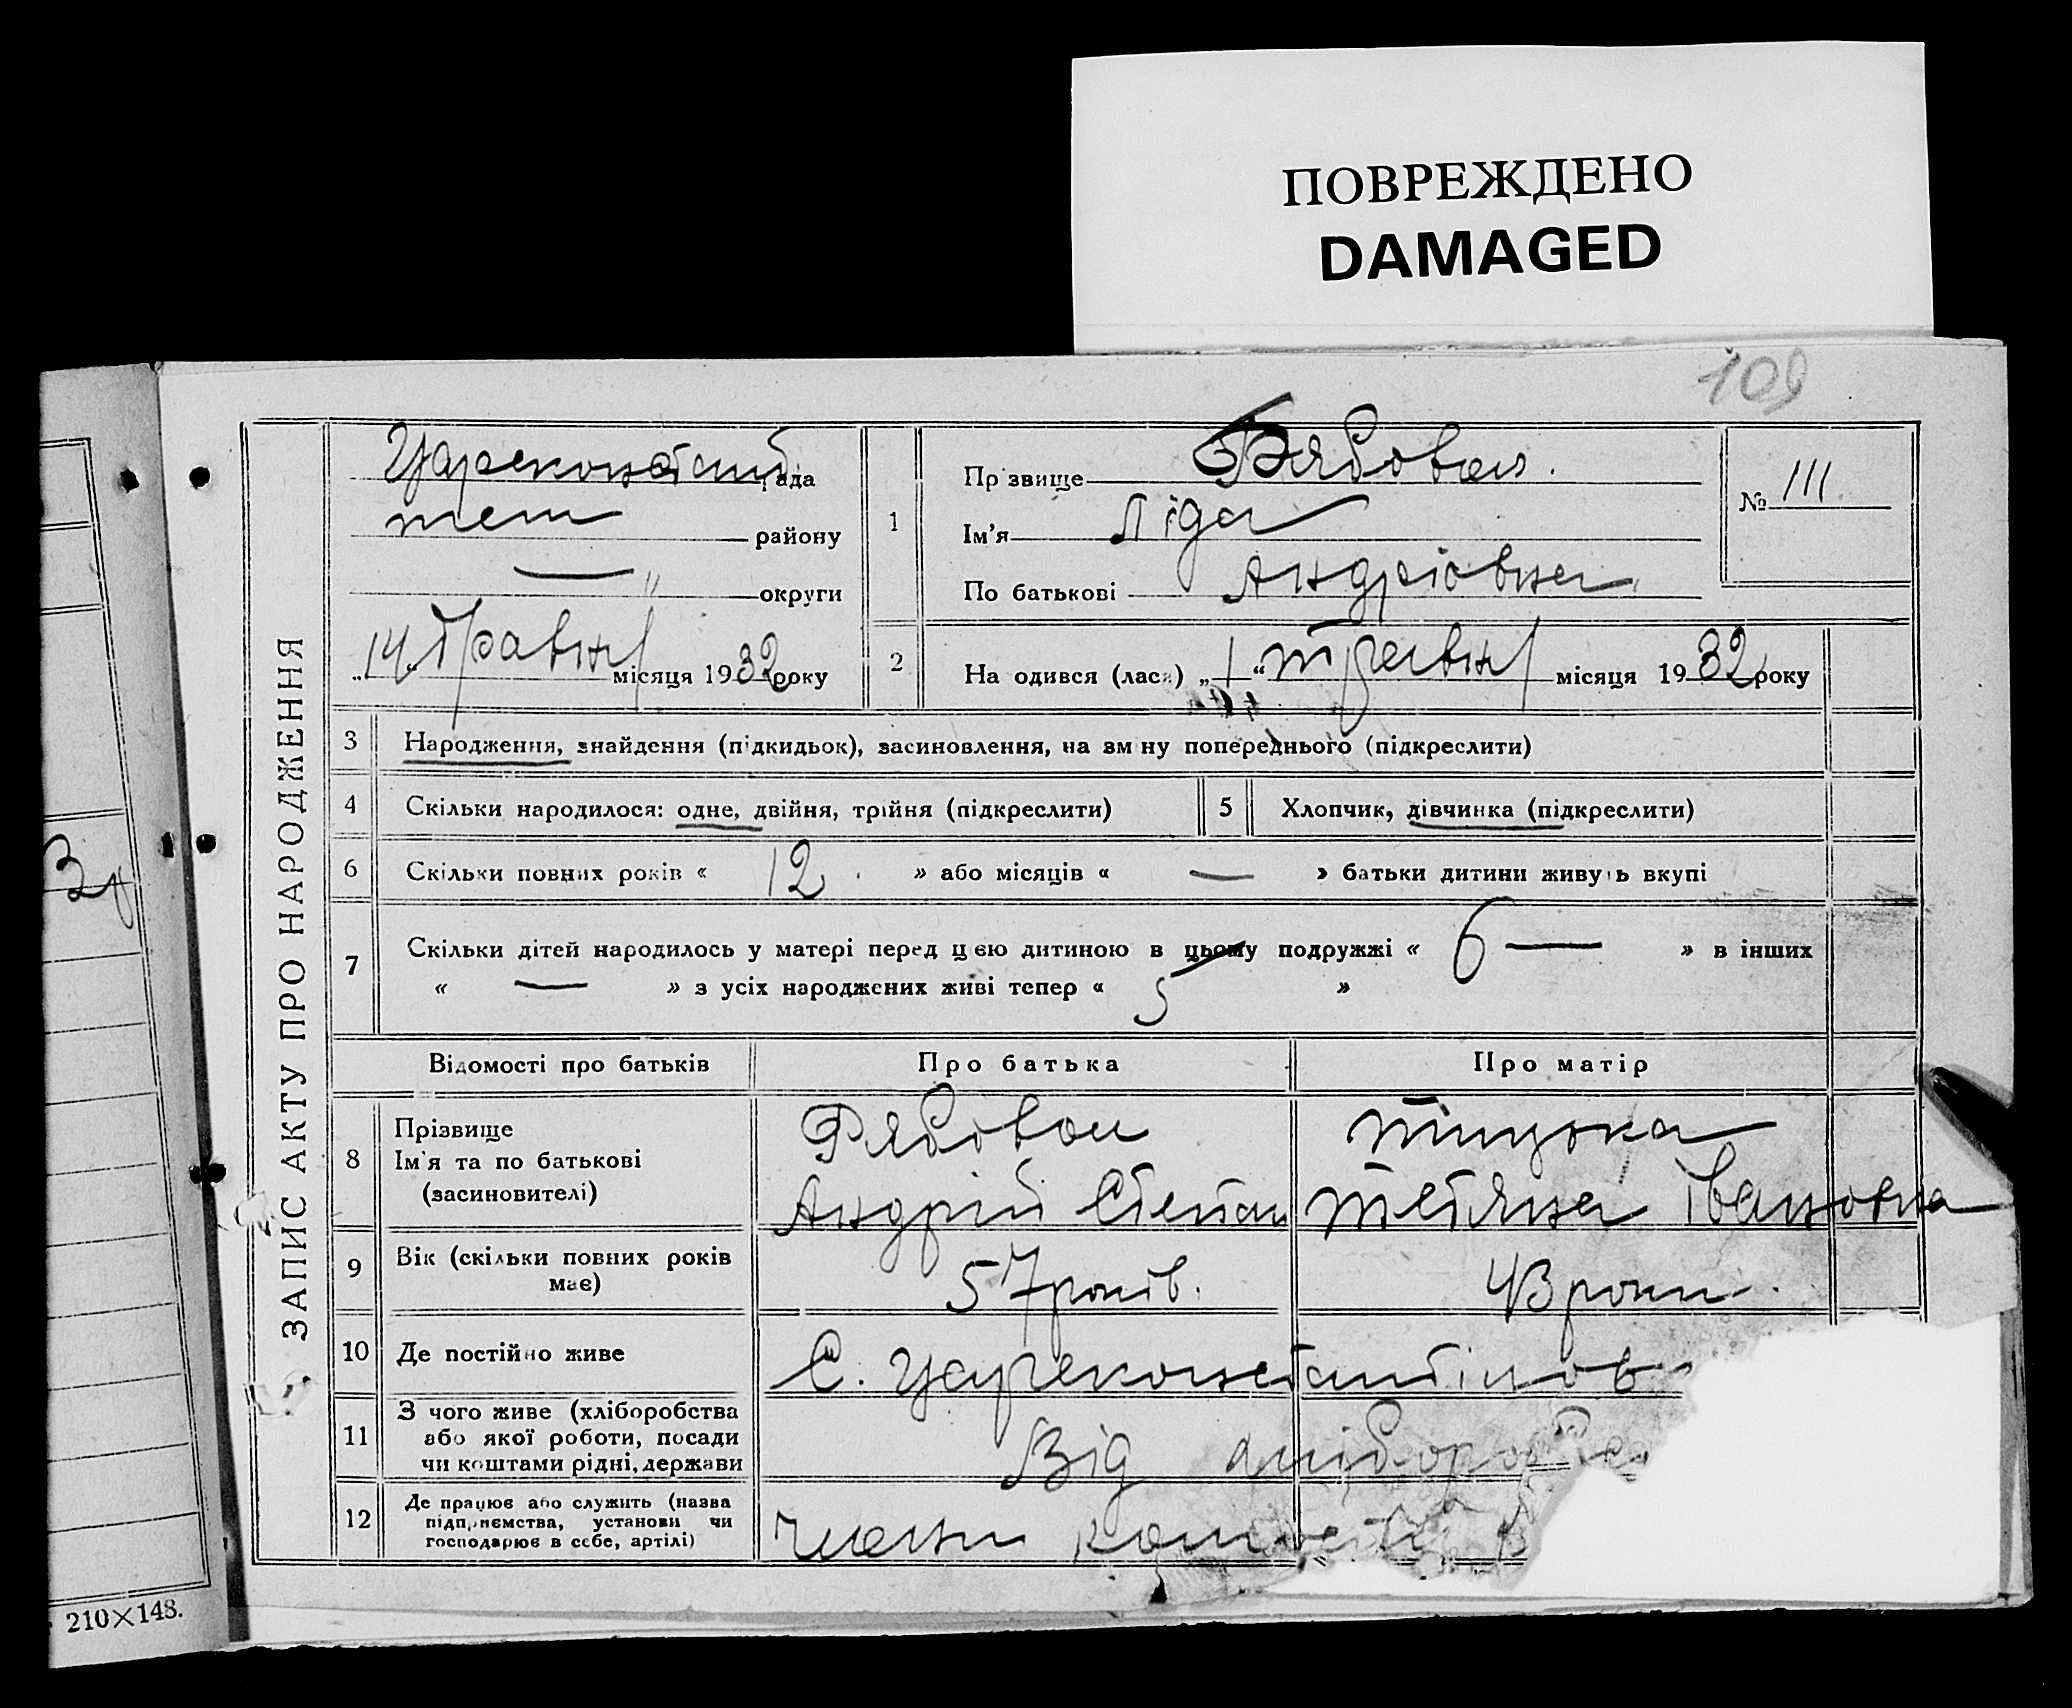 ПОВРЕЖДЕНО
DAMAGED
109
ЗАПИС АКТУ ПРО НАРОДЖЕННЯ
Цареконстант рада
району
— " округи
„14" Травня місяця 1932 року
1
Прізвище Рябовол.
Ім'я Ліда
По батькові Андріовна
№ 111
2 На одився (лася) „1" травня місяця 1932 року
3 Народження, знайдення (підкидьок), засиновлення, на зміну попереднього (підкреслити)
4 Скільки народилося: одне, двійня, трійня (підкреслити)
5 Хлопчик, дівчинка (підкреслити)
6 Скільки повних років « 12 . » або місяців « — » батьки дитини живуть вкупі
7 Скільки дітей народилось у матері перед цією дитиною в цьому подружжі « 6 — » в інших
« — » з усіх народжених живі тепер « 5 »
Відомості про батьків Про батька Про матір
8 Прізвище
Ім'я та по батькові
(засиновителі)
Рябовол
Андрій Степан
Тетяна Івановна
9 Вік (скільки повних років
має)
57 років.
43 роки.
10 Де постійно живе С. Цареконстантінов
11 З чого живе (хліборобства
або якої роботи, посади
чи коштами рідні, держави
Від хліборобс
12 Де працює або служить (назва
підприємства, установи чи
господарює в себе, артілі)
210×148.